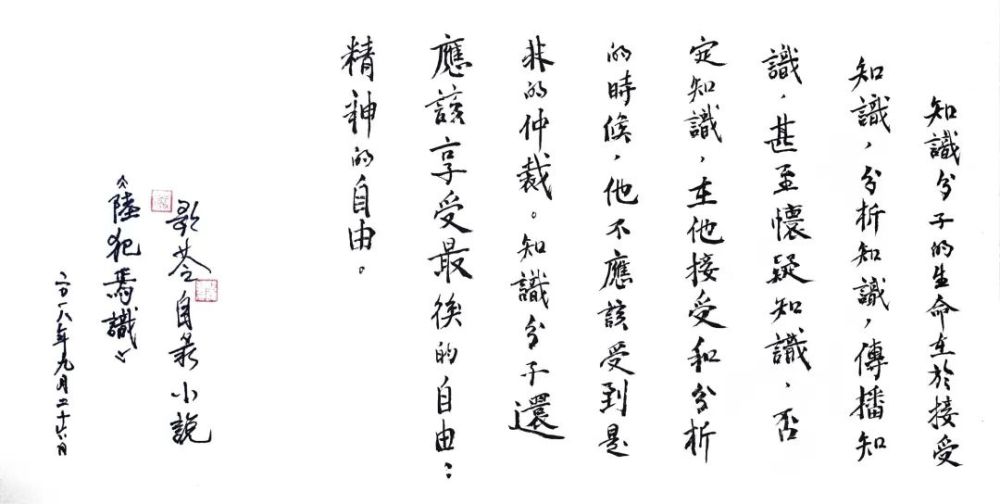 知識分子的生命在於接受
知識，分析知識，傳播知
識，甚至懷疑知識，否
定知識，在他接受和分析
的時候，他不應該受到是
非的仲裁。知識分子還
應該享受最後的自由：
精神的自由。
歌苓自录小說
《陸犯焉識》
二〇一八年九月二十六日